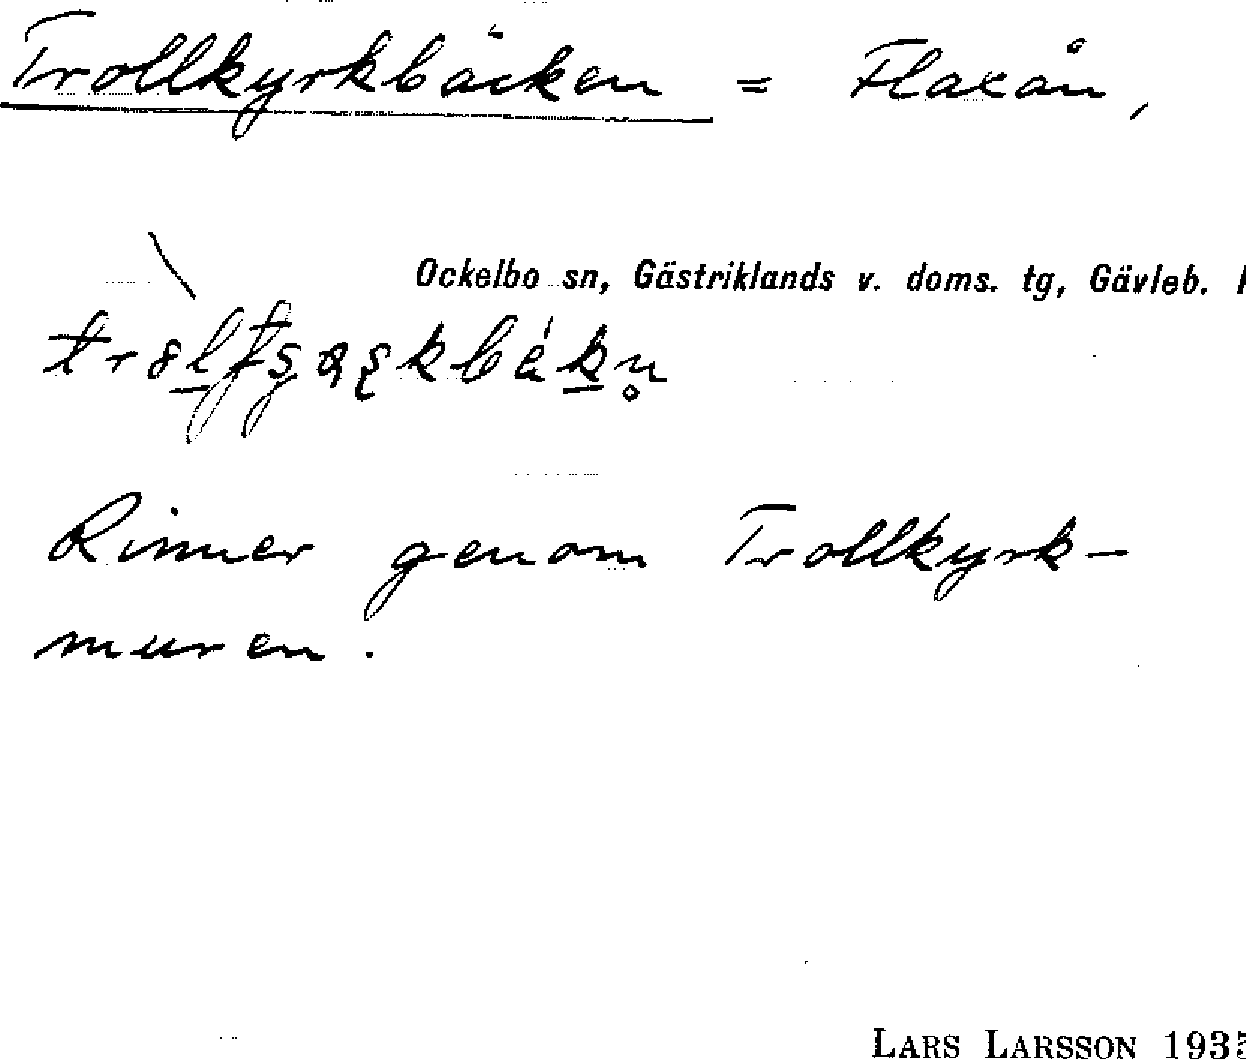 Trollkyrkbäcken = Flaxån,
Ockelbo sn, Gästriklands v. doms. tg, Gävleb.
Rinner genom Trollkyrk-
muren.
LARS LARSSON 193